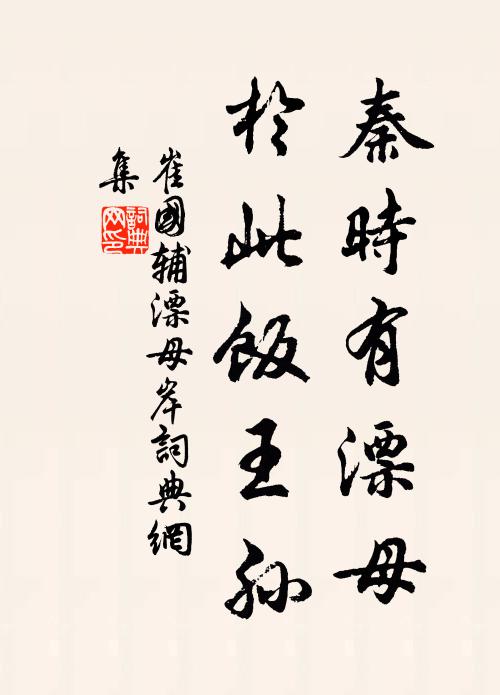 秦時有漂母
於此飯王孫
崔國輔漂母岸詞典網
集
詞典
网印